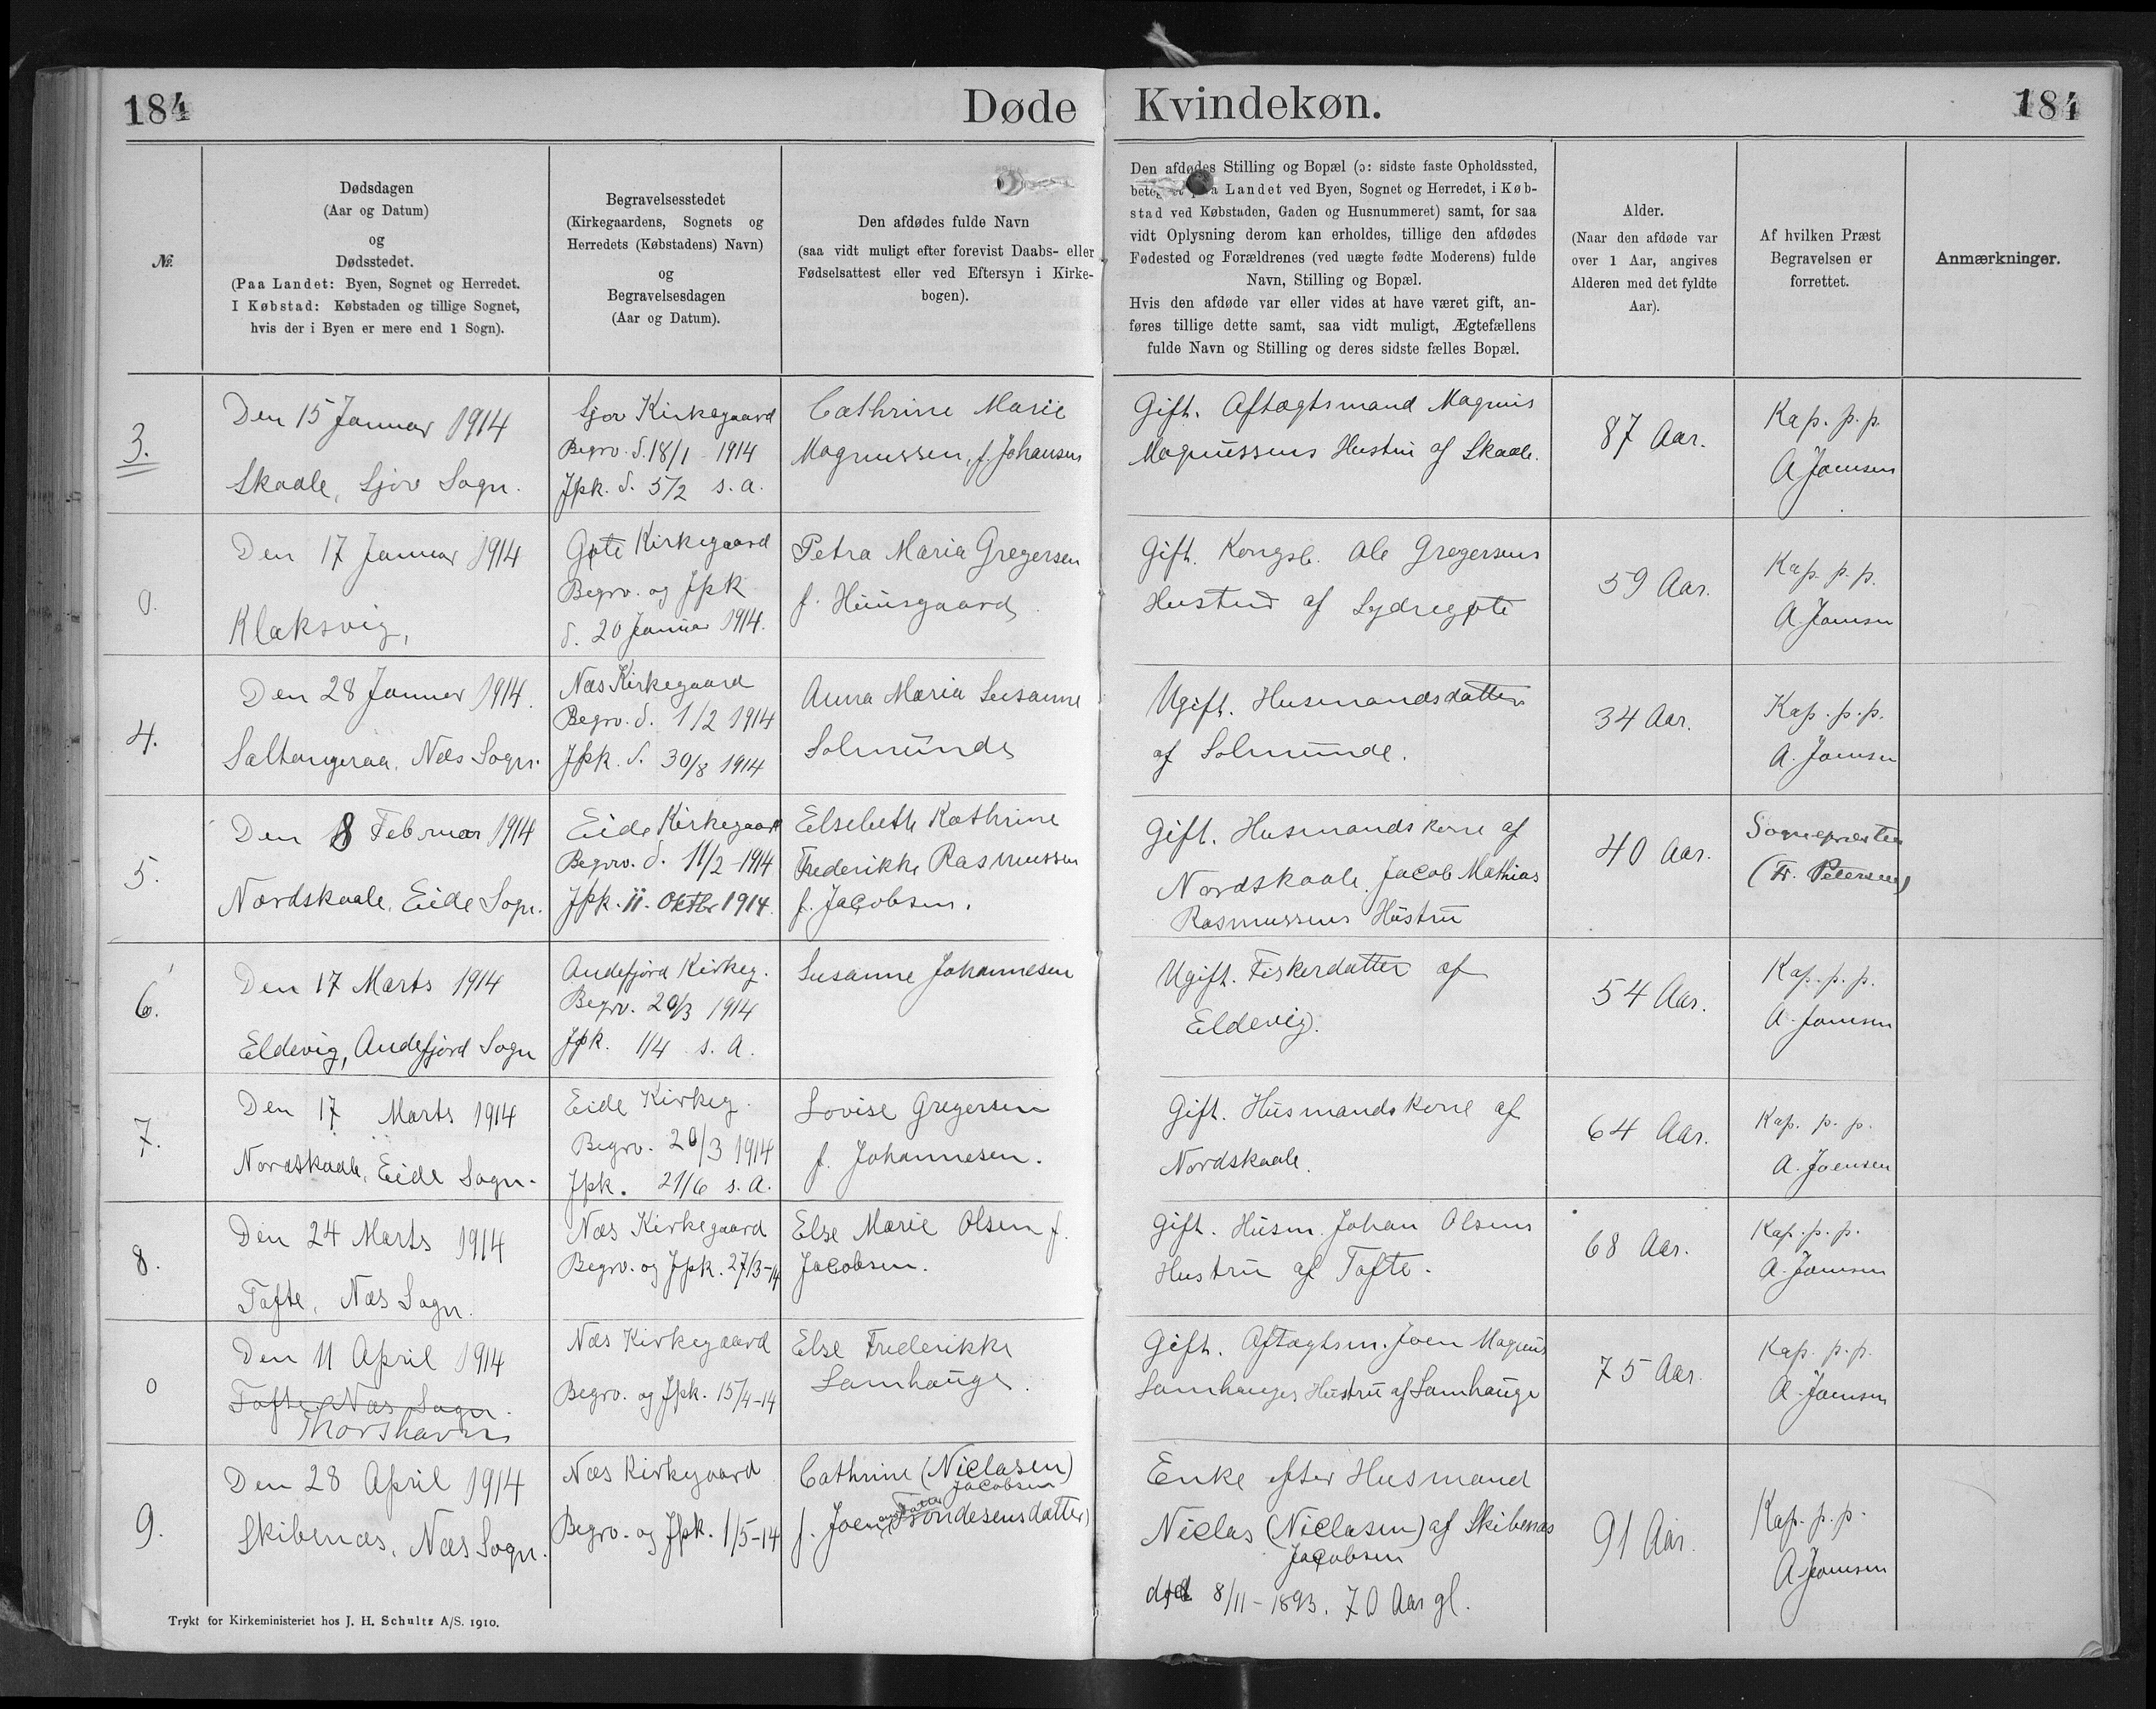 184
Døde
Kvindekøn.
184
№
Dødsdagen
(Aar og Datum)
og
Dødsstedet.
(Paa Landet: Byen, Sognet og Herredet.
I Købstad: Købstaden og tillige Sognet,
hvis der i Byen er mere end 1 Sogn).
Begravelsesstedet
(Kirkegaardens, Sognets og
Herredets (Købstadens) Navn)
og
Begravelsesdagen
(Aar og Datum).
Den afdødes fulde Navn
(saa vidt muligt efter forevist Daabs- eller
Fødselsattest eller ved Eftersyn i Kirke-
bogen).
Den afdødes Stilling og Bopæl (ɔ: sidste faste Opholdssted,
paa Landet ved Byen, Sognet og Herredet, i Køb-
stad ved Købstaden, Gaden og Husnummeret) samt, for saa
vidt Oplysning derom kan erholdes, tillige den afdødes
Fødested og Forældrenes (ved uægte fødte Moderens) fulde
Navn, Stilling og Bopæl.
Hvis den afdøde var eller vides at have været gift, an-
føres tillige dette samt, saa vidt muligt, Ægtefællens
fulde Navn og Stilling og deres sidste fælles Bopæl.
Alder.
(Naar den afdøde var
over 1 Aar, angives
Alderen med det fyldte
Aar).
Af hvilken Præst
Begravelsen er
forrettet.
Anmærkninger.
3.
Den 15 Januar 1914
Skaale, Sjov Sogn.
Sjov Kirkegaard
Begrv. d. 18/1 - 1914
Jpk. d. 5/2 s. a.
Cathrine Marie
Magnussen, f. Johansen
Gift. Aftægtsmand Magnus
Magnussens Hustru af Skaale.
87 Aar.
Kap. p. p.
A Joensen
0.
Den 17 Januar 1914
Klaksvig,
Gøte Kirkegaard
Begrv. og Jpk
d. 20 Januar 1914.
Petra Maria Gregersen
f. Huusgaard
Gift. Kongsb. Ole Gregersens
Hustru af Sydregøte
59 Aar.
Kap. p. p.
A. Joensen
4.
Den 28 Januar 1914.
Saltangeraa, Næs Sogn.
Næs Kirkegaard
Begrv. d. 1/2 1914
Jpk. d. 30/8 1914
Anna Maria Susanne
Solmunde
Ugift. Husmandsdatter
af Solmunde.
34 Aar.
Kap. p. p.
A. Joensen
5.
Den 8 Februar 1914
Nordskaale, Eide Sogn.
Eide Kirkegaard
Begrv. d. 11/2 - 1914
Jpk. 11. Oktbr 1914.
Elsebeth Kathrine
Frederikke Rasmussen
f. Jacobsen.
Gift. Husmandskone af
Nordskaale. Jacob Mathias
Rasmussens Hustru
40 Aar.
Sognepræsten
(Fr. Petersen)
6.
Den 17 Marts 1914
Eldevig, Andefjord Sogn
Andefjord Kirkeg.
Begrv. 20/3 1914
Jpk. 1/4 s. A.
Susanne Johannesen
Ugift. Fiskerdatter af
Eldevig.
54 Aar.
Kap. p. p.
A. Joensen
7.
Den 17 Marts 1914
Nordskaale, Eide Sogn.
Eide Kirkeg.
Begrv. 20/3 1914
Jpk. 21/6 s. A.
Lovise Gregersen
f. Johannesen.
Gift. Husmandskone af
Nordskaale.
64 Aar.
Kap. p. p.
A. Joensen
8.
Den 24 Marts 1914
Tofte, Næs Sogn.
Næs Kirkegaard
Begrv. og Jpk. 27/3-14
Else Marie Olsen f.
Jacobsen.
Gift. Husm. Johan Olsens
Hustru af Tofte.
68 Aar.
Kap. p. p.
A. Joensen
0
Den 11 April 1914
Tofte, Næs Sogn.
Thorshavn
Næs Kirkegaard
Begrv. og Jpk. 15/4-14
Else Frederikke
Lamhauge.
Gift. Aftægtsm. Joen Magnus
Lamhauges Hustru af Lamhauge
75 Aar.
Kap. p. p.
A. Joensen
9.
Den 28 April 1914
Skibenæs, Næs Sogn.
Næs Kirkegaard
Begrv. og Jpk. 1/5-14
Cathrine (Niclasen)
Jacobsen
f. Joen Trondesensdatter)
Enke efter Husmand
Niclas (Niclasen) af Skibenæs
Jacobsen
død 8/11 - 1893. 70 Aar gl.
91 Aar.
Kap. p. p.
A. Joensen
Trykt for Kirkeministeriet hos J. H. Schultz A/S. 1910.